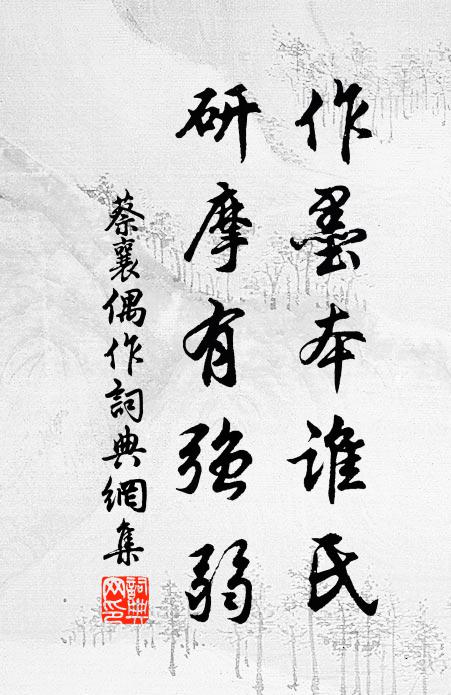 作墨本誰氏
研摩有強弱
蔡襄偶作詞典網集